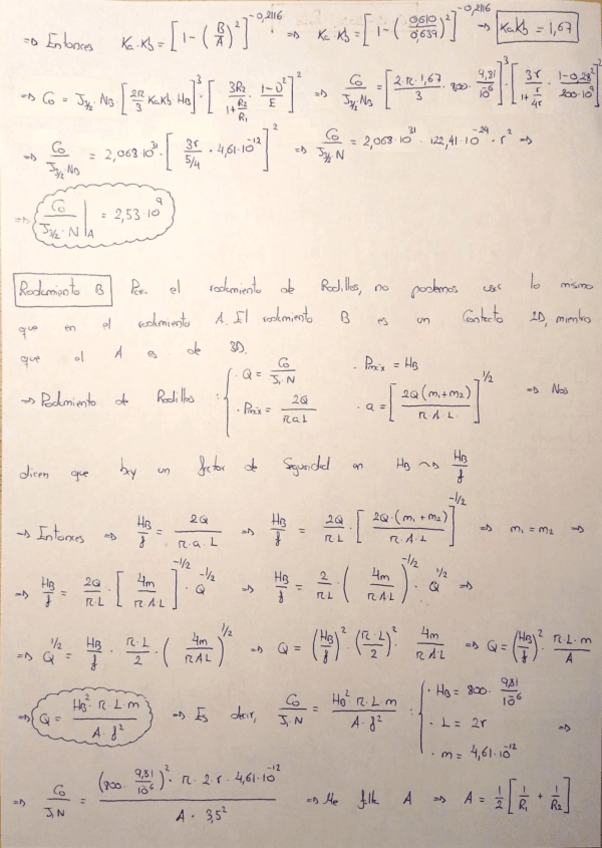 => Entonces Ka·Kb = [1 - (B/A)²]^-0,2116 => Ka·Kb = [1 - (0,610/0,639)²]^-0,2116 => KaKb = 1,67
=> C0 = J3/2·NB·[2π/3 KaKb HB]³·[3R2/(1+R2/R1) · (1-υ²)/E]² => C0/(J3/2·NB) = [2·π·1,67/3 · 800 · 9,81/10^-6]³·[3r/(1+r/4r) · (1-0,28²)/(200·10^9)]²
=> C0/(J3/2·NB) = 2,068·10^31 · [3r/(5/4) · 4,61·10^-12]² => C0/(J3/2·N) = 2,068·10^31 · 122,41·10^-24 · r² =>
=> C0/(J3/2·N)|A = 2,53·10^9
Rodamiento B Para el rodamiento de Rodillos, no podemos usar lo mismo
que en el rodamiento A. El rodamiento B es un Contacto 2D, mientra
que al A es de 3D.
=> Rodamiento de Rodillos : { · Q = C0/(J1·N) · Pmáx = HB
· Pmáx = 2Q/(π a L) · a = [2Q(m1+m2)/(π·A·L)]^1/2 => Nos
dicen que hay un factor de Seguridad en HB ~> HB/f
=> Entonces => HB/f = 2Q/(π·a·L) => HB/f = 2Q/(π·L) · [2Q·(m1+m2)/(π·A·L)]^-1/2 => m1 = m2 =>
=> HB/f = 2Q/(π·L) · [4m/(π A L)]^-1/2 · Q^-1/2 => HB/f = 2/(πL) · (4m/(πAL))^-1/2 · Q^1/2 =>
=> Q^1/2 = HB/f · π·L/2 · (4m/(πAL))^1/2 => Q = (HB/f)² · (π·L/2)² · 4m/(π·A·L) => Q = (HB/f)² · π·L·m/A
=> Q = HB²·π·L·m/(A·f²) => Es decir, C0/(J1·N) = HB²·π·L·m/(A·f²) : { · HB = 800 · 9,81/10^-6
· L = 2r =>
· m = 4,61·10^-12
=> C0/(J1N) = (800 · 9,81/10^-6)² · π · 2·r · 4,61·10^-12/(A · 3,5²) => Me falta A => A = 1/2 [1/R1 + 1/R2]